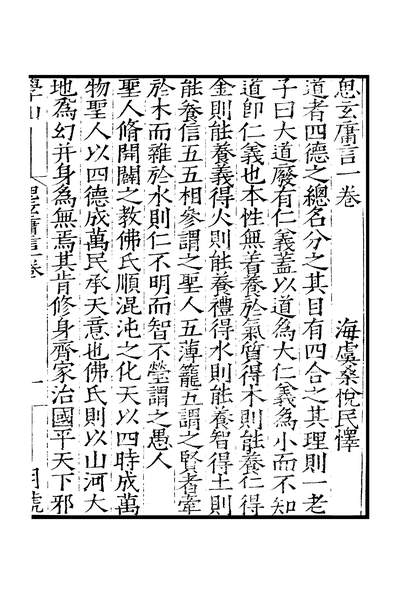 思玄庸言一卷
海虞桑悅民懌
道者四德之總名分之其目有四合之其理則一老
子曰大道廢有仁義蓋以道為大仁義為小而不知
道卽仁義也本性無着養於氣質得木則能養仁得
金則能養義得火則能養禮得水則能養智得土則
能養信五五相參謂之聖人五薄籠五謂之賢者牽
於木而雜於水則仁不明而智不瑩謂之愚人
聖人脩開闢之教佛氏順混沌之化天以四時成萬
物聖人以四德成萬民承天意也佛氏則以山河大
地為幻并身為無焉其肯修身齊家治國平天下邪
學山
思玄庸言卷
一